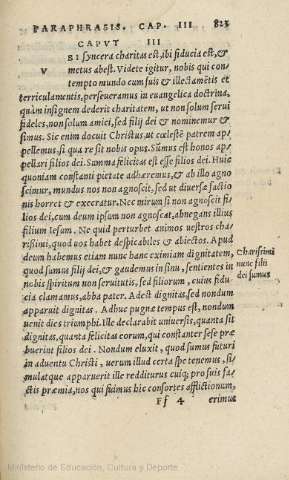 PARAPHRASIS. CAP. III 823
CAPVT III
BI syncera charitas est, ibi fiducia est, &
V metus abest. Videte igitur, nobis qui con-
tempto mundo cum suis & illectamētis et
terriculamentis, perseueramus in euangelica doctrina,
quàm insignem dederit charitatem, ut non solum serui
fideles, non solum amici, sed filij dei & nominemur &
simus. Sic enim docuit Christus ut cœlestē patrem ap-
pellemus, si qua re sit nobis opus. Sūmus est honos ap-
pellari filios dei. Summa felicitas est esse filios dei. Huic
quoniam constanti pietate adhæremus, & ab illo agno
scimur, mundus nos non agnoscit, sed ut diuersæ factio
nis horret & execratur. Nec mirum si non agnoscit fi-
lios dei, cum deum ipsum non agnoscat, abnegans illius
filium Iesum. Ne quid perturbet animos uestros cha-
rissimi, quod uos habet despicabiles & abiectos. Apud
deum habemus etiam nunc hanc eximiam dignitatem,
Charissimi
nunc filij
dei sumus
quod sumus filij dei, & gaudemus in sinu, sentientes in
nobis spiritum non seruitutis, sed filiorum, cuius fidu-
cia clamamus, abba pater. Adest dignitas, sed nondum
apparuit dignitas. Adhuc pugnæ tempus est, nondum
uenit dies triumphi. Ille declarabit uniuersis, quanta sit
dignitas, quanta felicitas eorum, qui constanter sese præ
buerint filios dei. Nondum eluxit, quod sumus futuri
in aduentu Christi, uerum illud certa spe tenemus, si-
mulatque apparuerit ille redditurus cuiq; pro suis fa-
ctis præmia, nos qui fuimus hic consortes afflictionum,
Ff 4 erimus
Ministerio de Educación, Cultura y Deporte